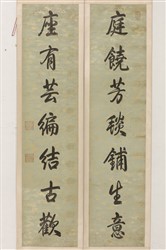 庭饒芳毯鋪生意
座有芸編結古歡